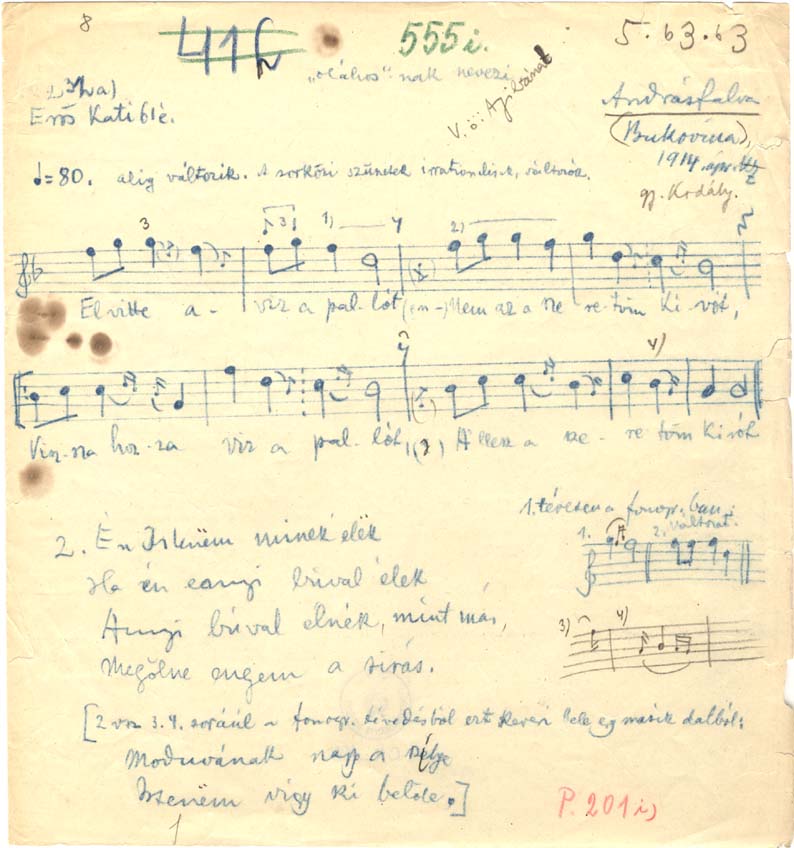 8
416
555i.
5.63.63
"oláhos"-nak nevezi
V. ö: A jiltánat!
Erős Kati 61é.
Andrásfalva
(Bukovina),
1914. ápr.
gy. Kodály.
♩=80. alig változik. A sorközi szünetek irrationálisak, változók.
3 3 1) 2)
Elvitte a- viz a pal-lót (em-) Nem az a sze- re-tőm ki-vót,
4)
Visz-sza hoz-za viz a pal-lót, A lesz a sze- re tőm ki vót
1. téresen a fonogr.-ban:
1. 2. változat.
2. Én Istenëm minek élëk
Ha én eanyi búval élek
Annyi búval élnék, mint más,
3) 4)
Megölne engem a sirás.
[2 vsz 3.4. soráúl a fonogr. tévedésből ezt keveri bele egy másik dalból:
Moduvának nagy a
Iszenëm vigy ki belőle.]
P. 201i)
1